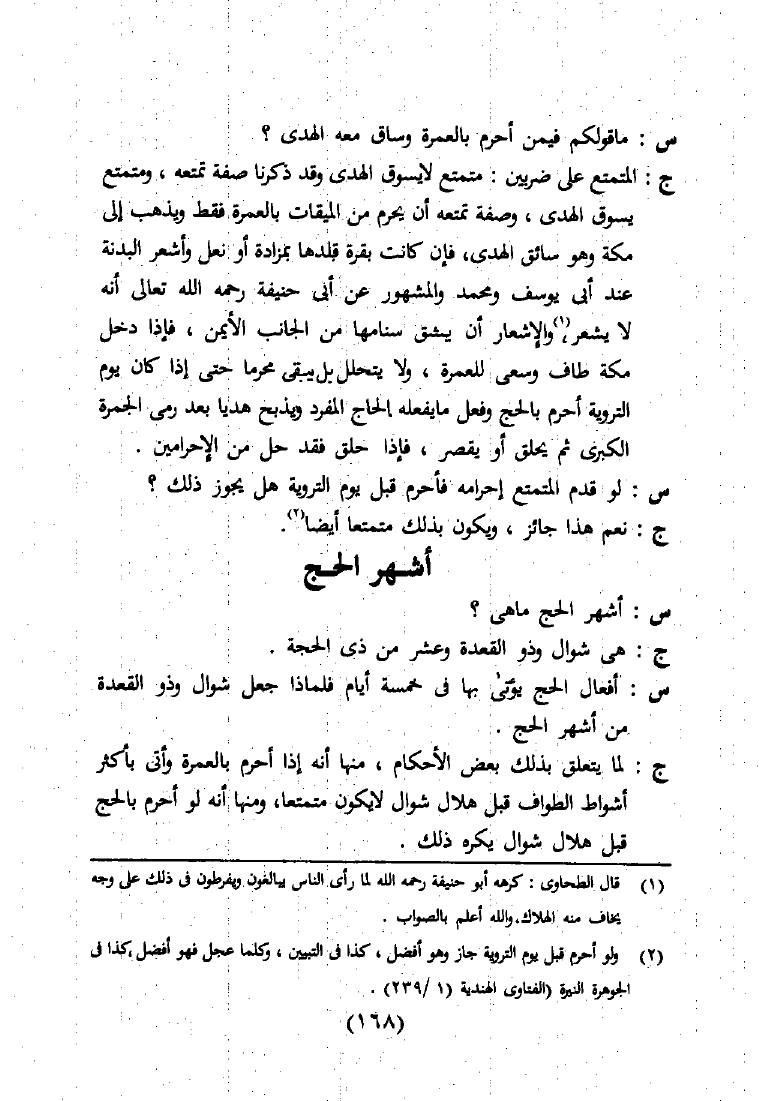 س : ماقولكم فيمن أحرم بالعمرة وساق معه الهدى ؟
ج : المتمتع على ضربين : متمتع لايسوق الهدى وقد ذكرنا صفة تمتعه ، ومتمتع
يسوق الهدى ، وصفة تمتعه أن يحرم من الميقات بالعمرة فقط ويذهب إلى
مكة وهو سائق الهدى، فإن كانت بقرة قلدها بمزادة أو نعل وأشعر البدنة
عند أبى يوسف ومحمد والمشهور عن أبى حنيفة رحمه الله تعالى أنه
لا يشعر،(١) والإشعار أن يشق سنامها من الجانب الأيمن ، فإذا دخل
مكة طاف وسعى للعمرة ، ولا يتحلل بل يبقى محرما حتى إذا كان يوم
التروية أحرم بالحج وفعل مايفعله الحاج المفرد ويذبح هديا بعد رمى الجمرة
الكبرى ثم يحلق أو يقصر ، فإذا حلق فقد حل من الإحرامين .
س : لو قدم المتمتع إحرامه فأحرم قبل يوم التروية هل يجوز ذلك ؟
ج : نعم هذا جائز ، ويكون بذلك متمتعا أيضا(٢).
أشهر الحج
س : أشهر الحج ماهى ؟
ج : هى شوال وذو القعدة وعشر من ذى الحجة .
س : أفعال الحج يؤتىٰ بها فى خمسة أيام فلماذا جعل شوال وذو القعدة
من أشهر الحج .
ج : لما يتعلق بذلك بعض الأحكام ، منها أنه إذا أحرم بالعمرة وأتى بأكثر
أشواط الطواف قبل هلال شوال لايكون متمتعا، ومنها أنه لو أحرم بالحج
قبل هلال شوال يكره ذلك .
(١) قال الطحاوى : كرهه أبو حنيفة رحمه الله لما رأى الناس يبالغون ويفرطون فى ذلك على وجه
يخاف منه الهلاك، والله أعلم بالصواب .
(٢) ولو أحرم قبل يوم التروية جاز وهو أفضل ، كذا فى التبيين ، وكلما عجل فهو أفضل ،كذا فى
الجوهرة النيرة (الفتاوى الهندية (١ /٢٣٩) .
(١٦٨)